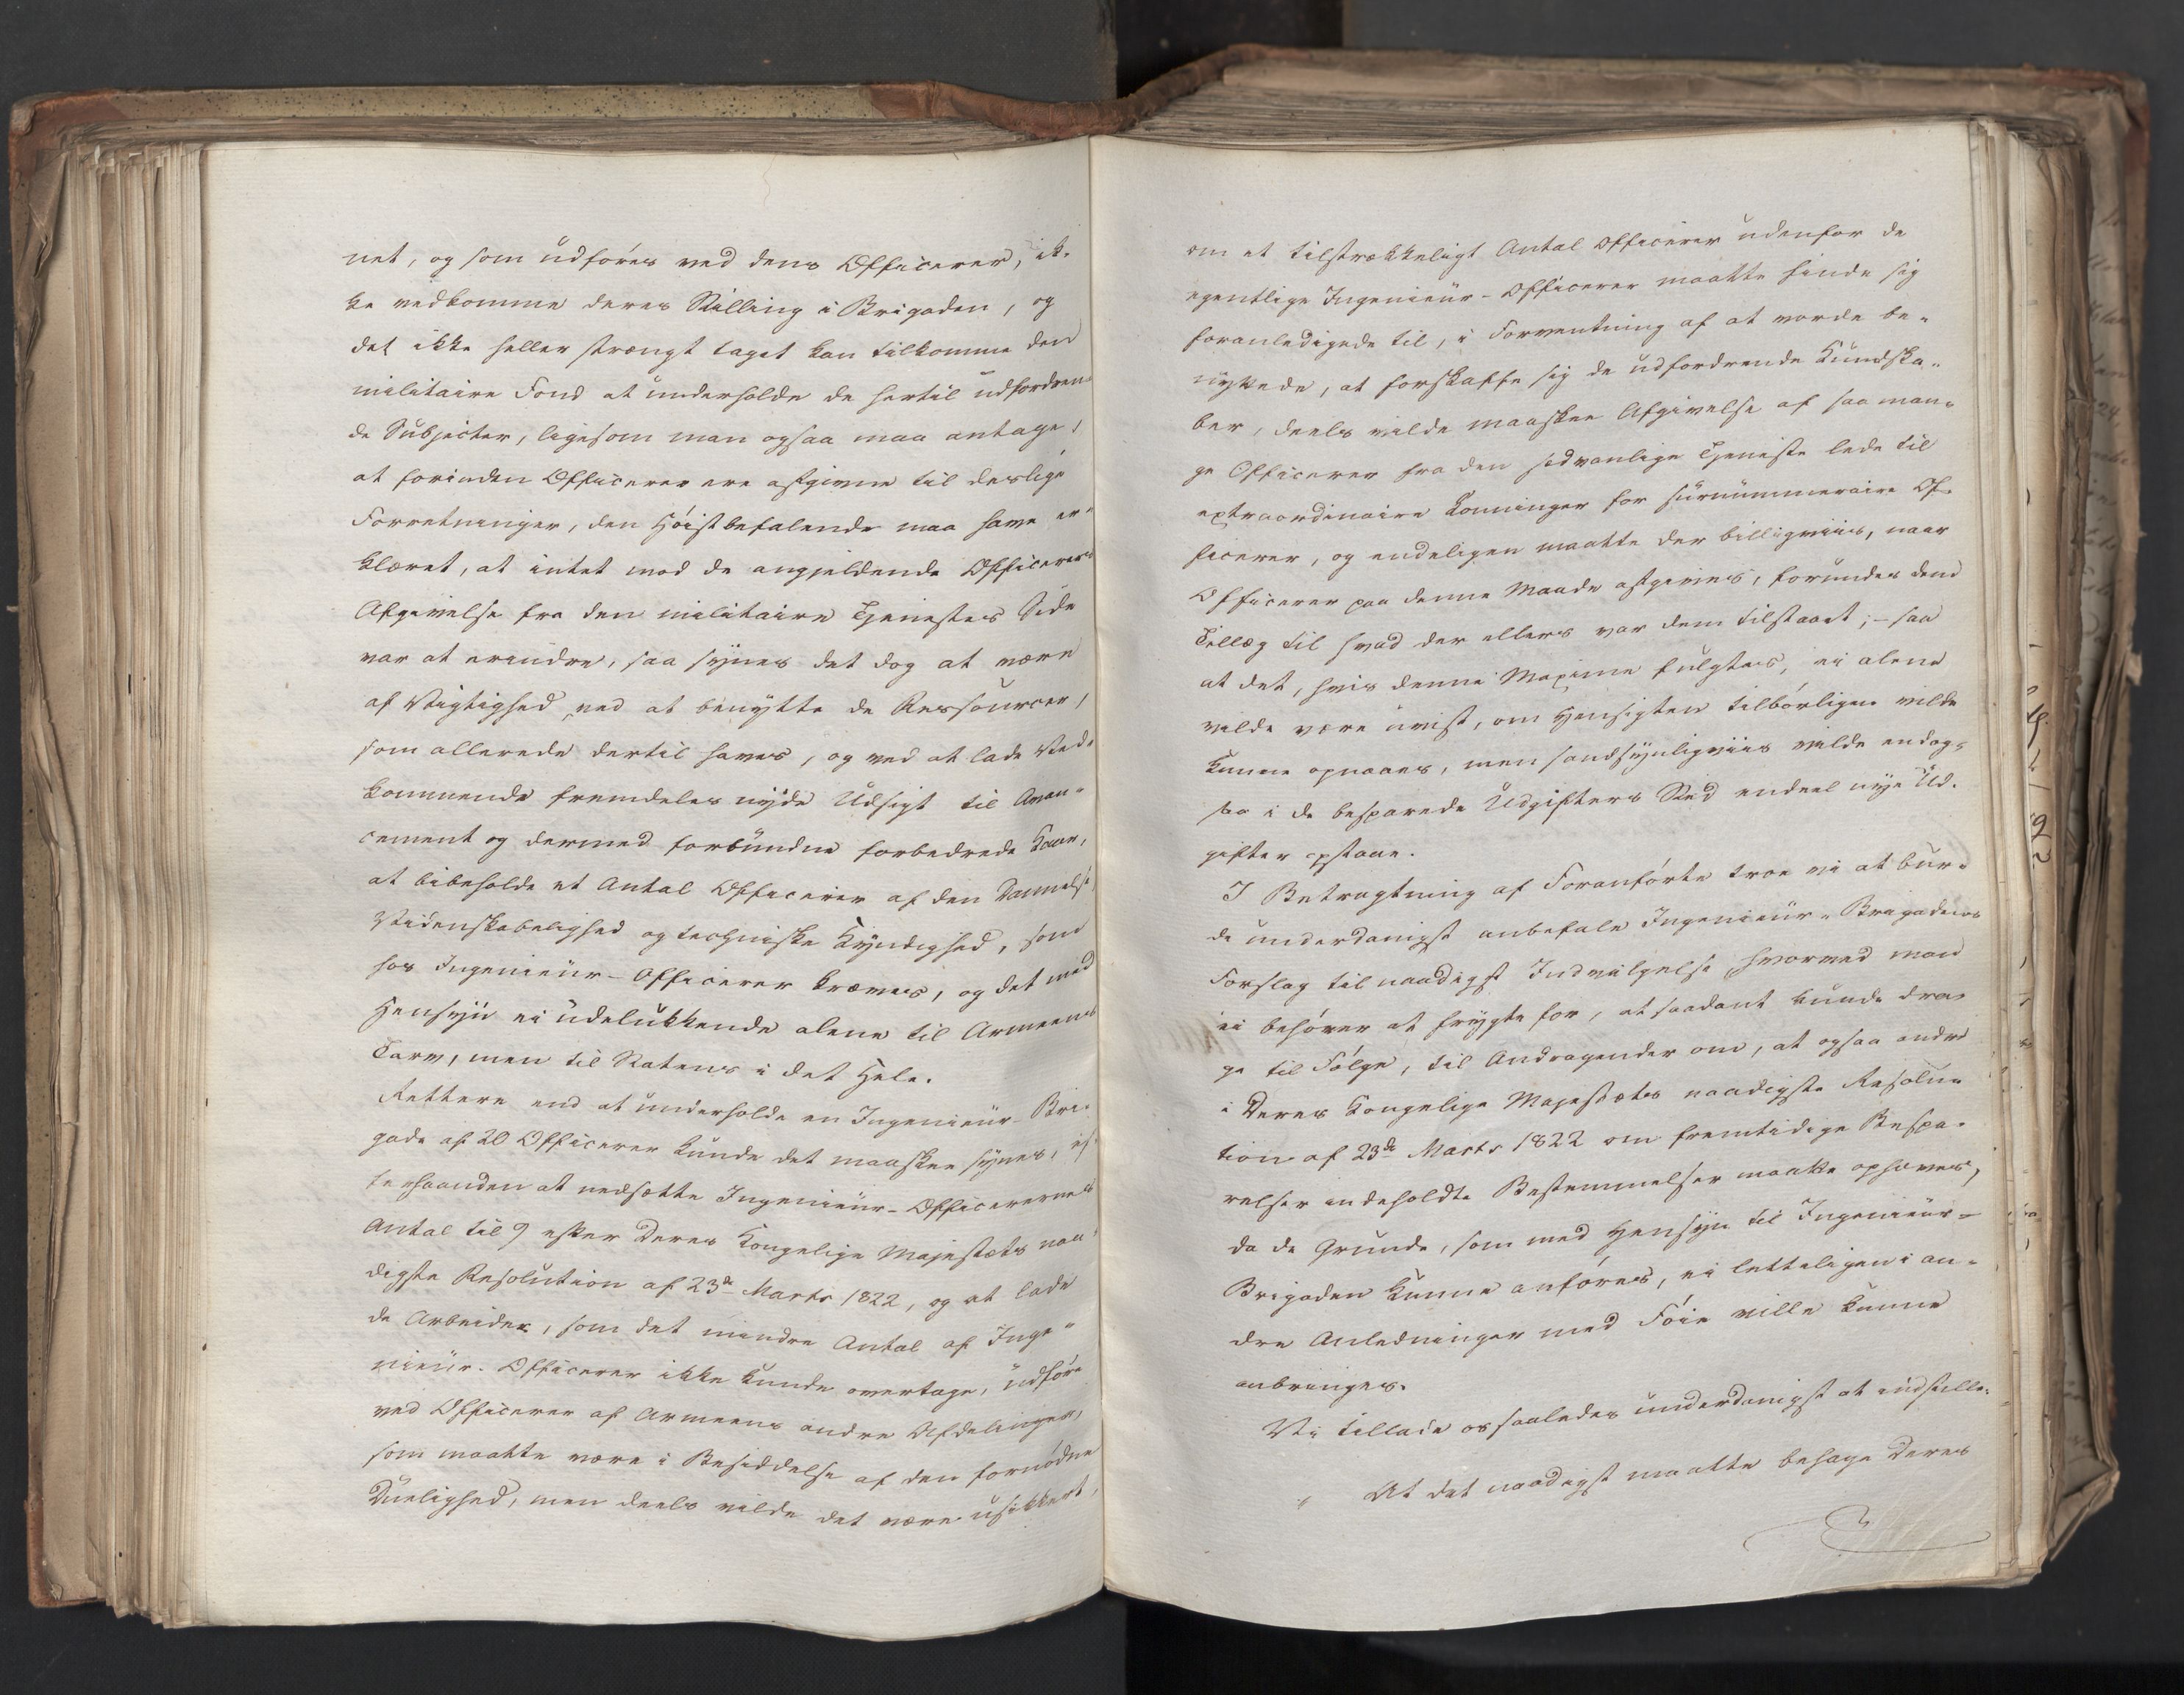 net, og som udføres ved dens Officerer, ik-
ke vedkomme deres Stilling i Brigaden, og
det ikke heller strængt taget kan tilkomme den
militaire Fond at underholde de hertil udfordren-
de Subjecter, ligesom man ogsaa maa antage,
at forinden Officerer ere afgivne til deslige
Forretninger, den Høistbefalende maa have er-
klæret, at intet mod de angjeldende Officerers
Afgivelse fra den militaire Tjenestes Side
var at erindre, saa synes det dog at være
af Vigtighed, ved at benytte de Ressourcer,
som allerede dertil haves, og ved at lade Ved-
kommende fremdeles nyde Udsigt til Avan-
cement og dermed forbundne forbedrede Kaar,
at bibeholde et Antal Officerer af den Dannelse,
Videnskabelighed og techniske Kyndighed, som
hos Ingenieur-Officerer kræves, og det med
Hensyn ei udelukkende alene til Armeens
Tarv, men til Statens i det Hele.
Rettere end at underholde en Ingenieur-Bri-
gade af 20 Officerer kunde det maaskee synes, ef-
terhaanden at nedsætte Ingenieur-Officerernes
Antal til 9 efter Deres Kongelige Majestæts naa-
digste Resolution af 23de Marts 1822, og at lade
de Arbeider, som det mindre Antal af Inge-
nieur-Officerer ikke kunde overtage, udføre
ved Officerer af Armeens andre Afdelinger,
som maatte være i Besiddelse af den fornødne
Duelighed, men deels vilde det være usikkert,
om et tilstrækkeligt Antal Officerer udenfor de
egentlige Ingenieur-Officerer maatte finde sig
foranledigede til, i Forventning af at vorde be-
nyttede, at forskaffe sig de udfordrende Kundska-
ber, deels vilde maaskee Afgivelse af saa man-
ge Officerer fra den sedvanlige Tjeneste lede til
extraordinaire Lønninger for surnummeraire Of-
ficerer, og endeligen maatte der billigviis, naar
Officerer paa denne Maade afgives, forundes dem
Tillæg til hvad der ellers var dem tilstaaet; – saa
at det, hvis denne Maxime fulgtes, ei alene
vilde være uvist, om Hensigten tilbørligen vilde
kunne opnaaes, men sandsynligviis vilde endog-
saa i de besparede Udgifters Sted endeel nye Ud-
gifter opstaae.
I Betragtning af Foranførte troe vi at bur-
de underdanigst anbefale Ingenieur-Brigadens
Forslag til naadigst Indvilgelse hvorved man
ei behøver at frygte for, at saadant kunde dra-
ge til Følge, til Andragender om, at ogsaa andre
i Deres Kongelige Majestæts naadigste Resolu-
tion af 23de Marts 1822 om fremtidige Bespa-
relser indeholdte Bestemmelser maatte ophæves,
da de Grunde, som med Hensyn til Ingenieur-
Brigaden kunne anføres, ei letteligen i an-
dre Anledninger med Føie ville kunne
anbringes.
Vi tillade os saaledes underdanigst at indstille:
" At det naadigst maatte behage Deres